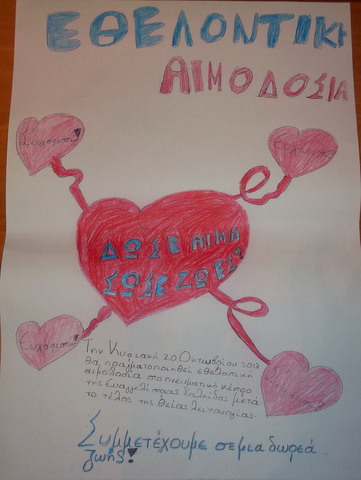 ΕΘΕΛΟΝΤΙΚΗ
ΑΙΜΟΔΟΣΙΑ
Ευχαριστώ!
ΔΩΣΕ ΑΙΜΑ
ΣΩΣΕ ΖΩΕΣ
Την Κυριακή 20 Οκτωβρίου
θα πραγματοποιηθεί εθελοντική
αιμοδοσία στο πνευματικό κέντρο
της Ευαγγελίστριας Χαλκίδας μετά
το τέλος της θείας λειτουργίας.
Συμμετέχουμε σε μια δωρεά
ζωής!